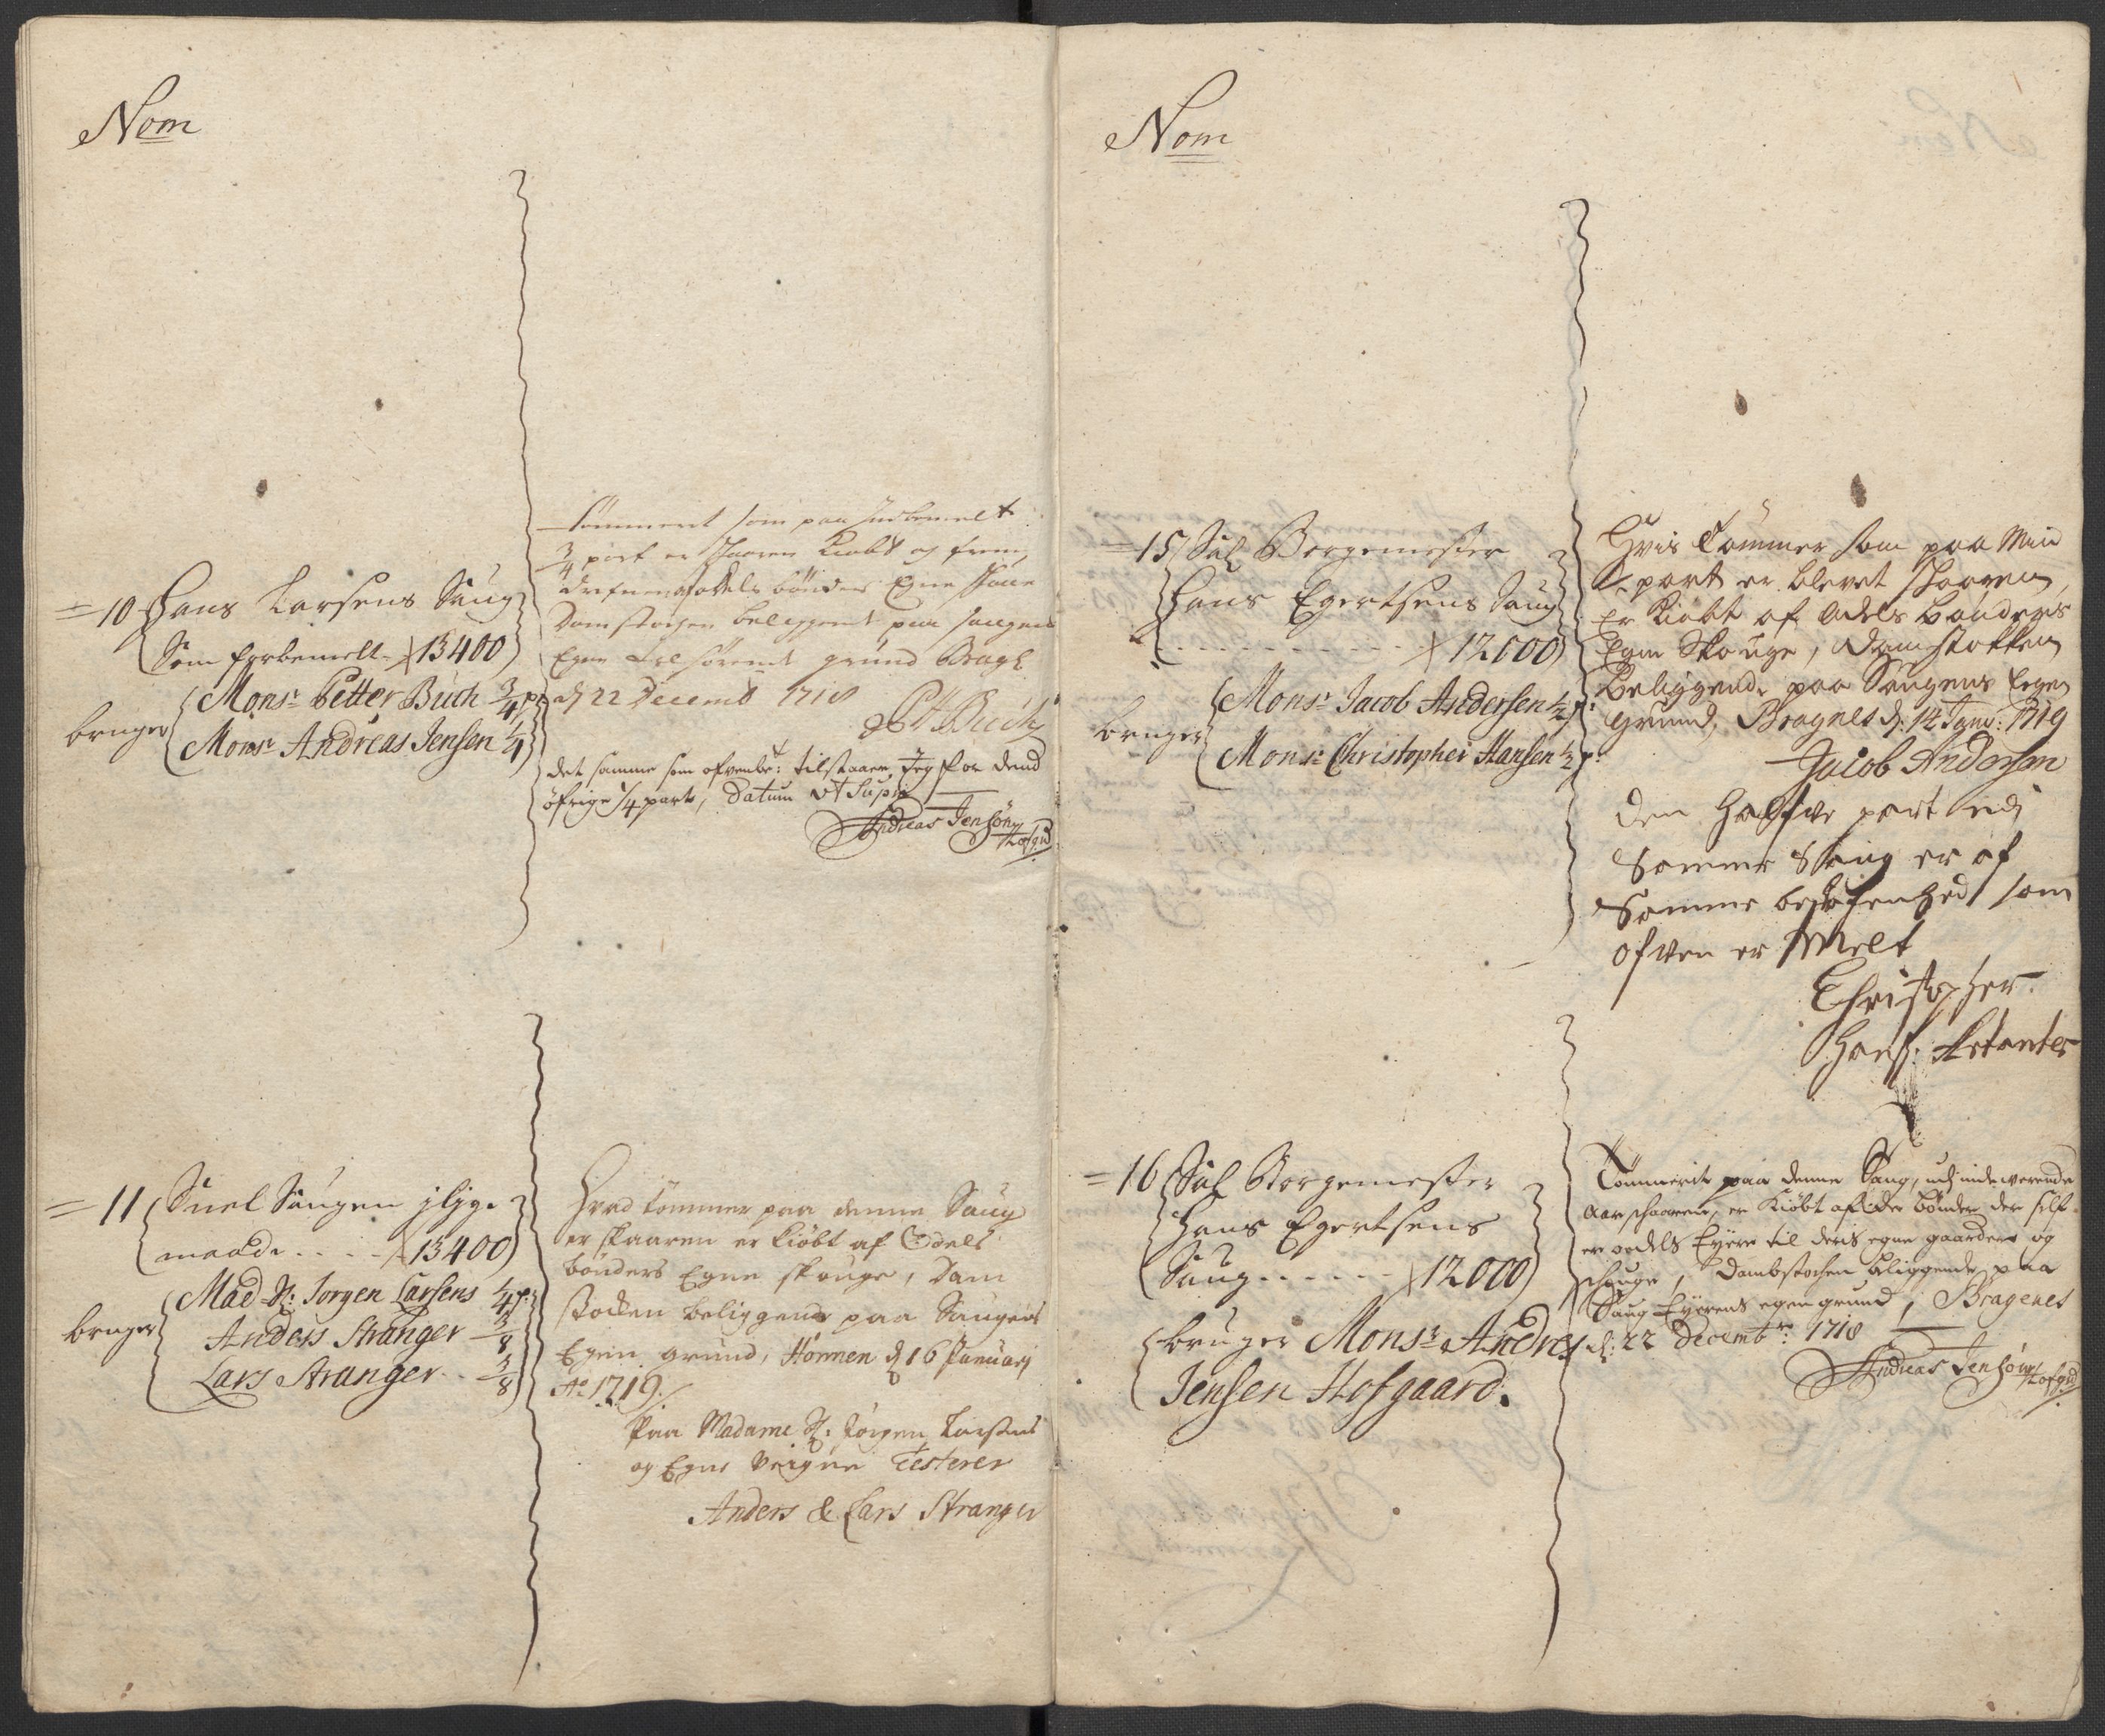 Nom
= 10 Hans Larsens Saug
Som forbemelt - 13400
bruger Monsr Petter Buch 3/4 p
Monsr Andreas Jensen 1/4
Tømmeret som paa indbemelt
3/4 part er skaaren Kiøbt og
odels bønders Egne
Damstochen beliggende paa Saugens
Egen grund Brag:
d 22 Decemb 1718
PBuch
det samme som ofvenbe: tilstaaer Jeg for dend
öfrige 1/4 part, Datum Ut Supra
Andreas Jensøn Hofgrd
= 11 Snel Saugen j lige
maade . . . . - 13400
bruger Mad Sl: Jørgen Larsens 1/4 p:
Anders Stranger 3/8
Lars Stranger - - 3/8
Hvad tømmer paa denne Saug
er skaaren er kiöbt af Odels
bönders Egne skouge, Dam
stocken beliggende paa Saugens
Egen grund, Hönnen d 16 Januarj
Ao 1719 /
Paa Madame Sl: Jörgen Larsens
og Egne Veigne Testerer
Anders & Lars Stranger
Nom
= 15 Sal Borgemester
Hans Egertsens Saug
- - - - - - - 12000
bruger Monsr Jacob Andersen 1/2 p:
Monsr Christopher Hansen 1/2 p:
Hvis Tømmer som paa Min
1/2 part er blevet skaaren,
Er kiøbt af Odels bønders
Egne Skouge, Damstokken
Beliggende paa Saugens Egen
grund, Bragnes d: 14 Janv: 1719
Jacob Andersen
Den halfve part udj
Samme Saug er af
Samme beskafenhed som
ofven er Melt
Christopher
Hans:
= 16 Sal Borgemester
Hans Egertsens
Saug - - - - - - 12000
bruger Monsr Andres
Jensen Hofgaard.
Tømmerit paa denne Saug, udj indeverende
Aar schaaren, er Kiöbt af de bønder der self
er oodels Eyere til deris egne gaarder og
schouge, Dambstochen beliggende paa
Saug Eyerens egen grund, Bragenes
d: 22 Decembr: 1718
Andreas Jensøn Hofgrd